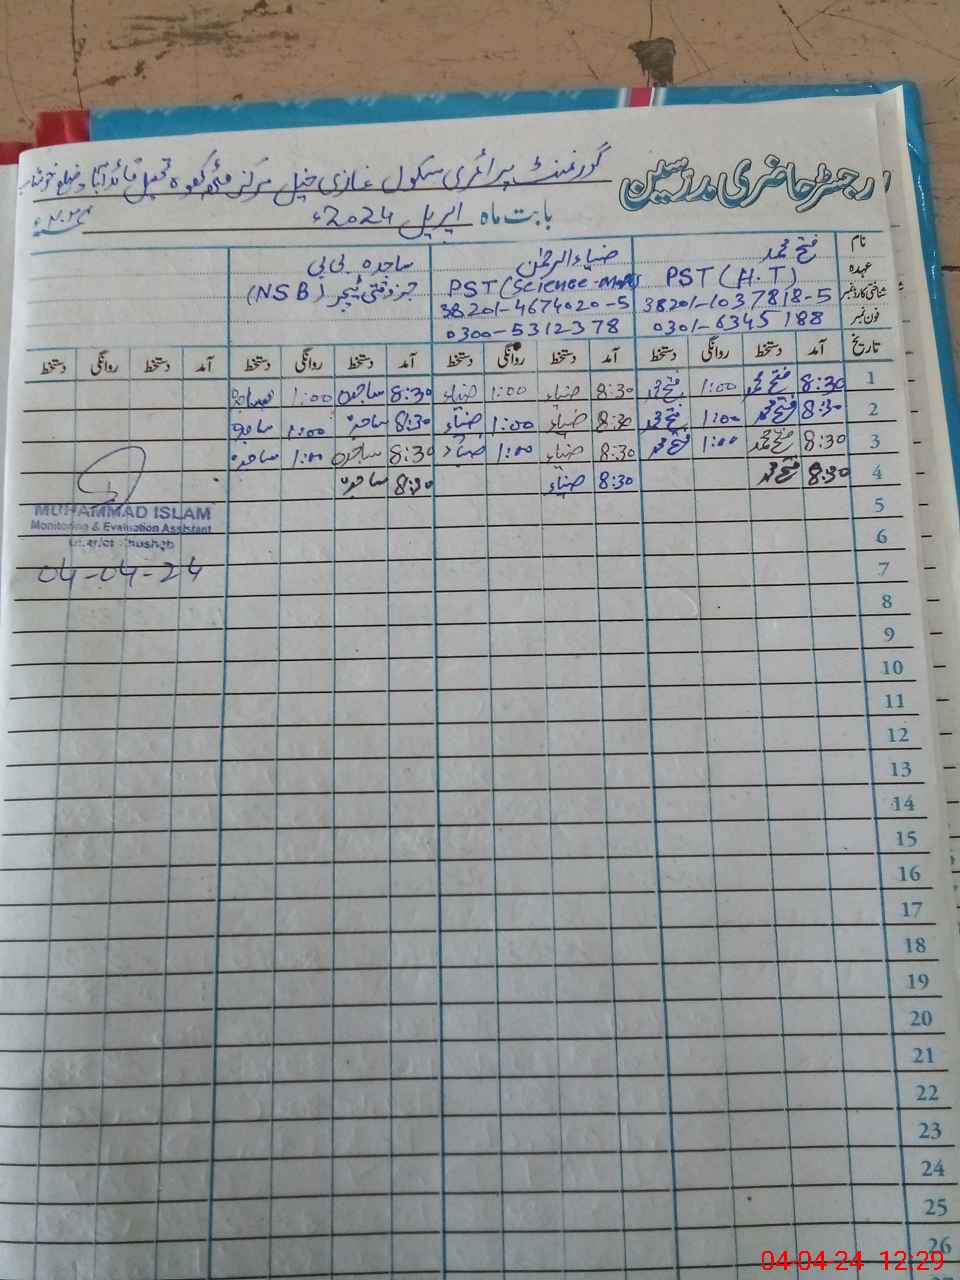 رجسٹر حاضری مدرسین
گورنمنٹ پرائمری سکول غازی خیل مرکز مٹھہ کہوہ تحصیل قائد آباد ضلع خوشاب
بابت ماہ اپریل 2024ء
نام فتح محمد ضیاء الرحمٰن ساجدہ بی بی
عہدہ PST (H.T) PST (Science-Math) جزوقتی ٹیچر (NSB)
شناختی کارڈ نمبر 38201-1037818-5 38201-4674020-5
فون نمبر 0301-6345188 0300-5312378
تاریخ آمد دستخط روانگی دستخط آمد دستخط روانگی دستخط آمد دستخط روانگی دستخط آمد دستخط روانگی دستخط
1 8:30 فتح محمد 1:00 فتح محمد 8:30 ضیاء 1:00 ضیاء 8:30 ساجدہ 1:00 ساجدہ
2 8:30 فتح محمد 1:00 فتح محمد 8:30 ضیاء 1:00 ضیاء 8:30 ساجدہ 1:00 ساجدہ
3 8:30 فتح محمد 1:00 فتح محمد 8:30 ضیاء 1:00 ضیاء 8:30 ساجدہ 1:00 ساجدہ
4 8:30 فتح محمد 8:30 ضیاء 8:30 ساجدہ
5
MUHAMMAD ISLAM
Monitoring & Evaluation Assistant
District Khushab
6
7
04-04-24
8
9
10
11
12
13
14
15
16
17
18
19
20
21
22
23
24
25
26
04-04-24 12:29